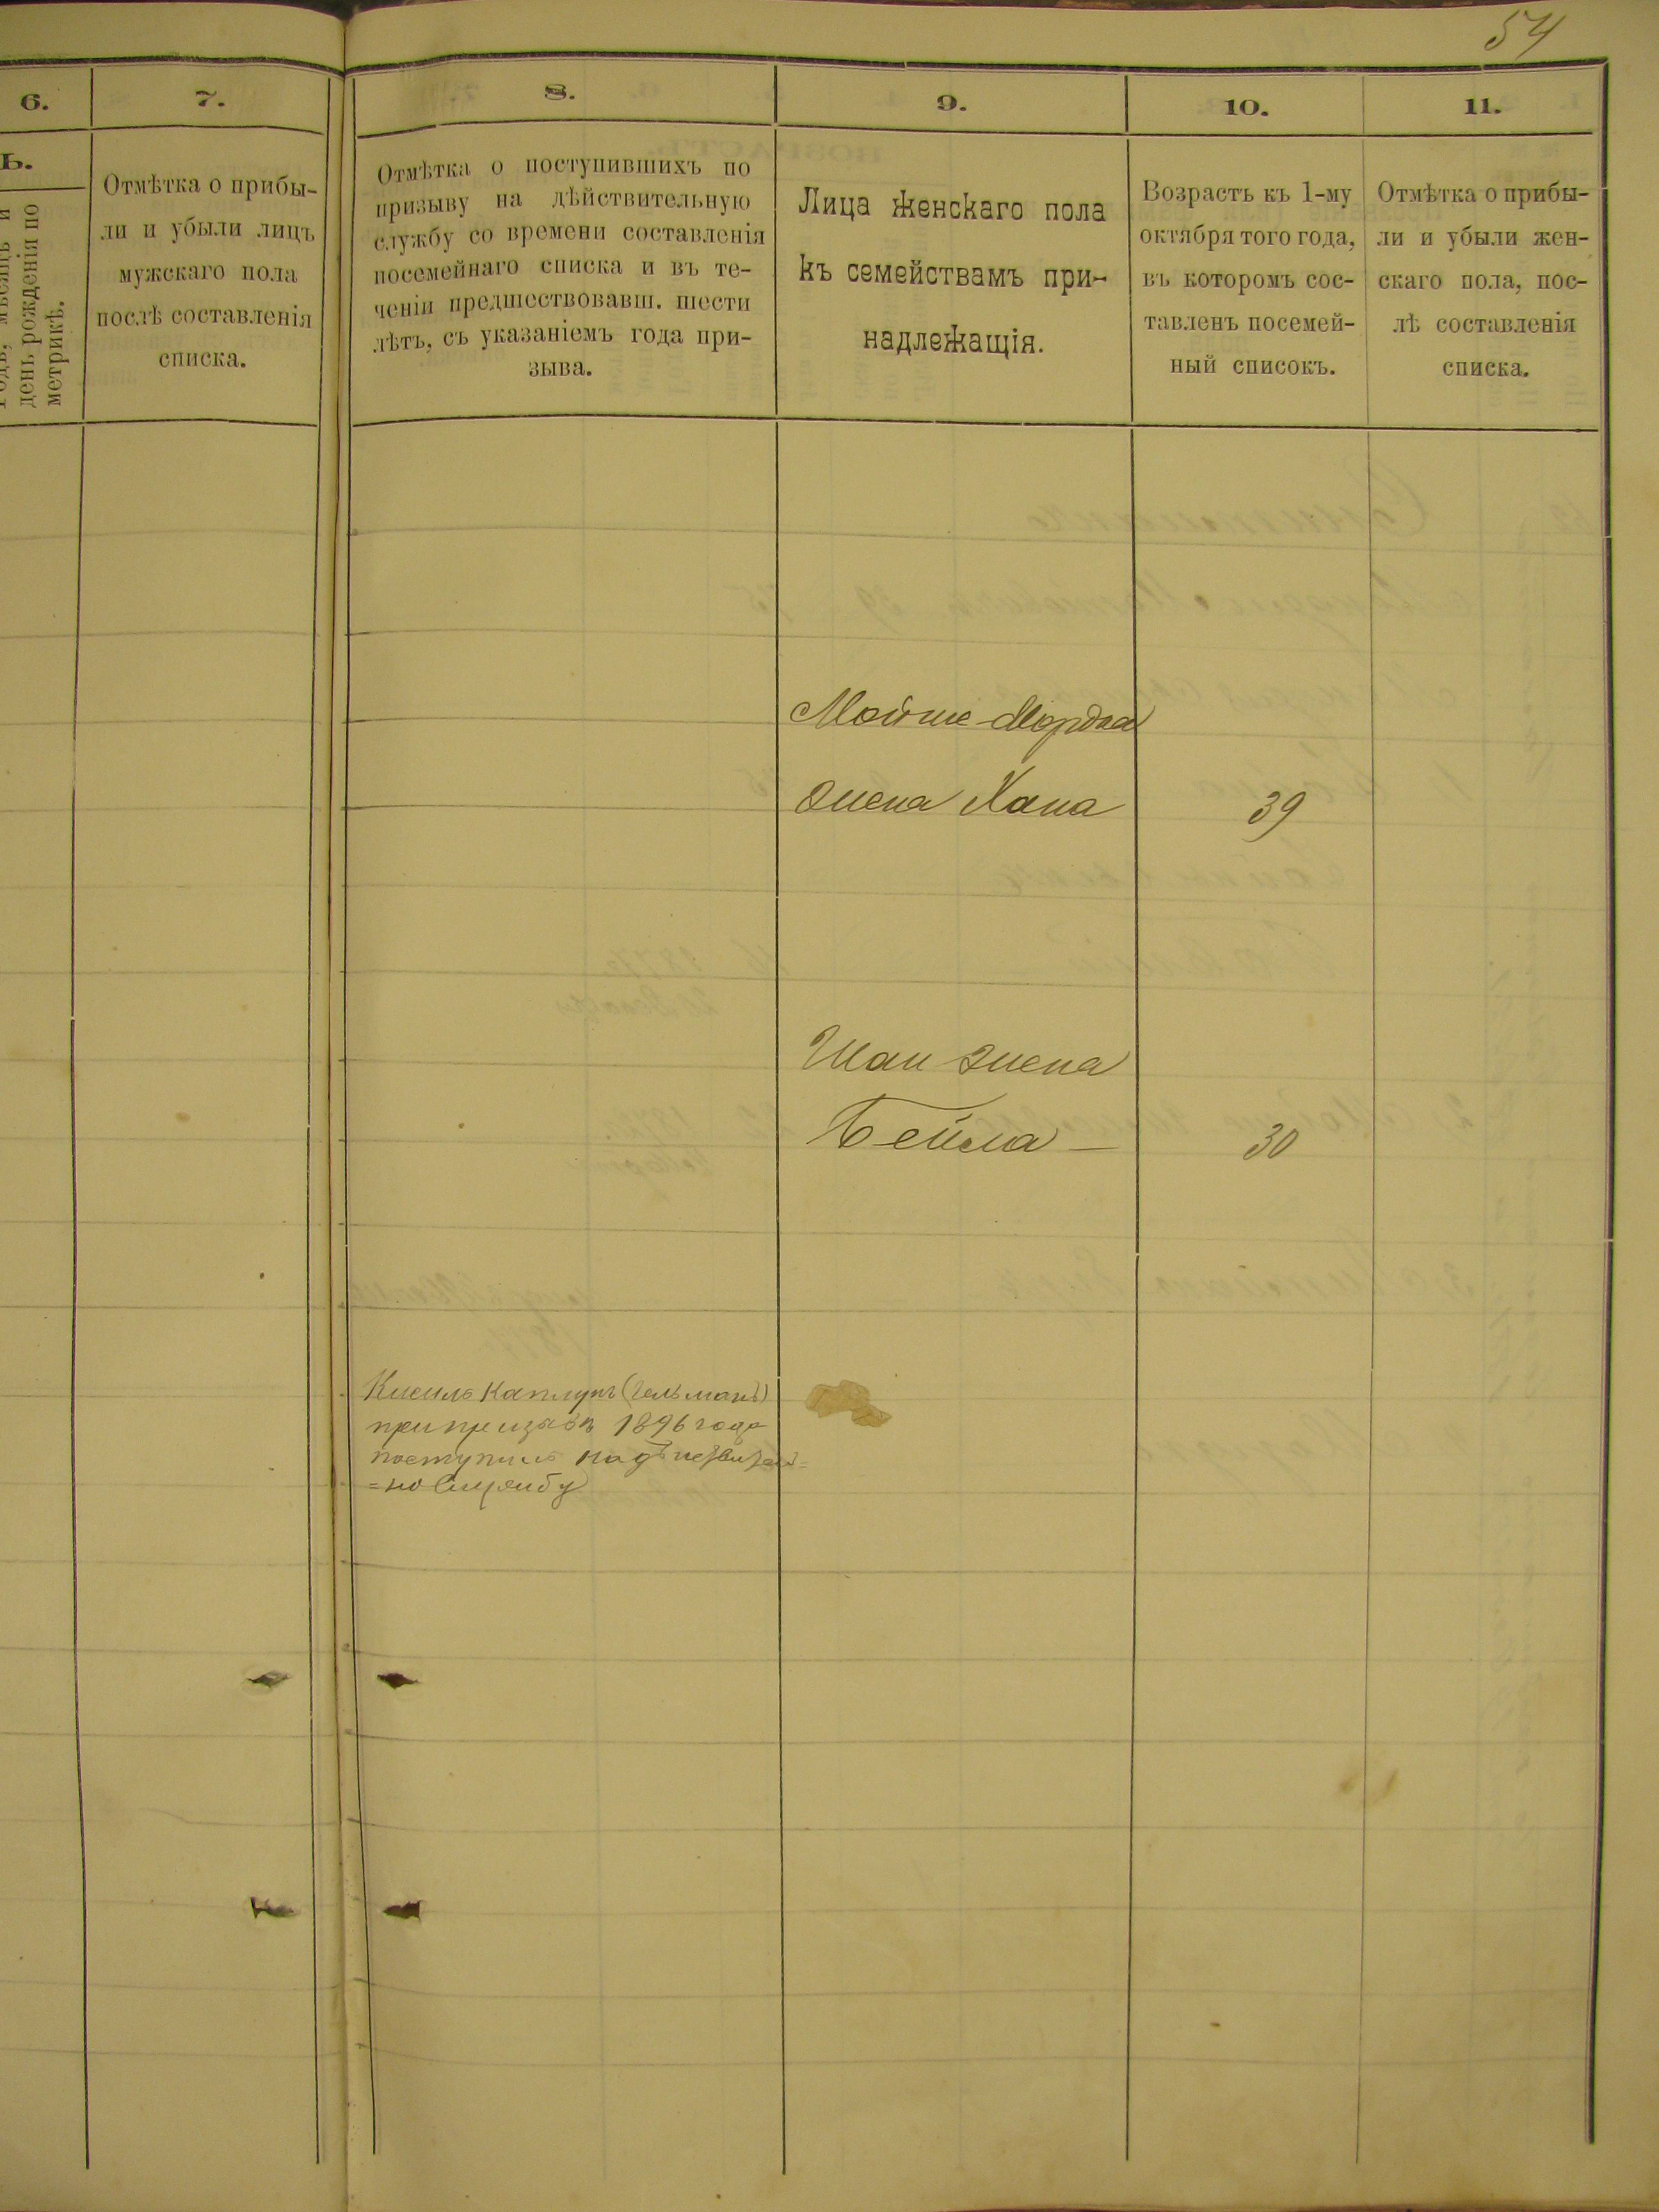 54
6.
7.
8.
9.
10.
11.
Ь.
день рожденія по
метрикѣ.
Отмѣтка о прибы-
ли и убыли лицъ
мужскаго пола
послѣ составленія
списка.
Отмѣтка о поступившихъ по
призыву на дѣйствительную
службу со времени составленія
посемейнаго списка и въ те-
ченіи предшествовавш. шести
лѣтъ, съ указаніемъ года при-
зыва.
Лица женскаго пола
къ семействамъ при-
надлежащія.
Возрастъ къ 1-му
октября того года,
въ которомъ сос-
тавленъ посемей-
ный списокъ.
Отмѣтка о прибы-
ли и убыли жен-
скаго пола, пос-
лѣ составленія
списка.
Мойше-Мордка
жена Хана 39
жена
Бейла — 30
Кисиль Каплунъ (Гельманъ)
при призывѣ 1896 года
поступилъ на
службу